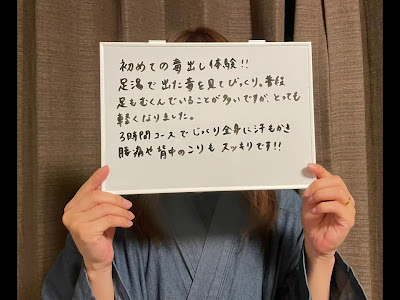 初めての毒出し体験!!
足湯で出た毒を見てびっくり。普段
足もむくんでいることが多いですが、とっても
軽くなりました。
3時間コースでじっくり全身に汗もかき
腰痛や背中のこりもスッキリです!!